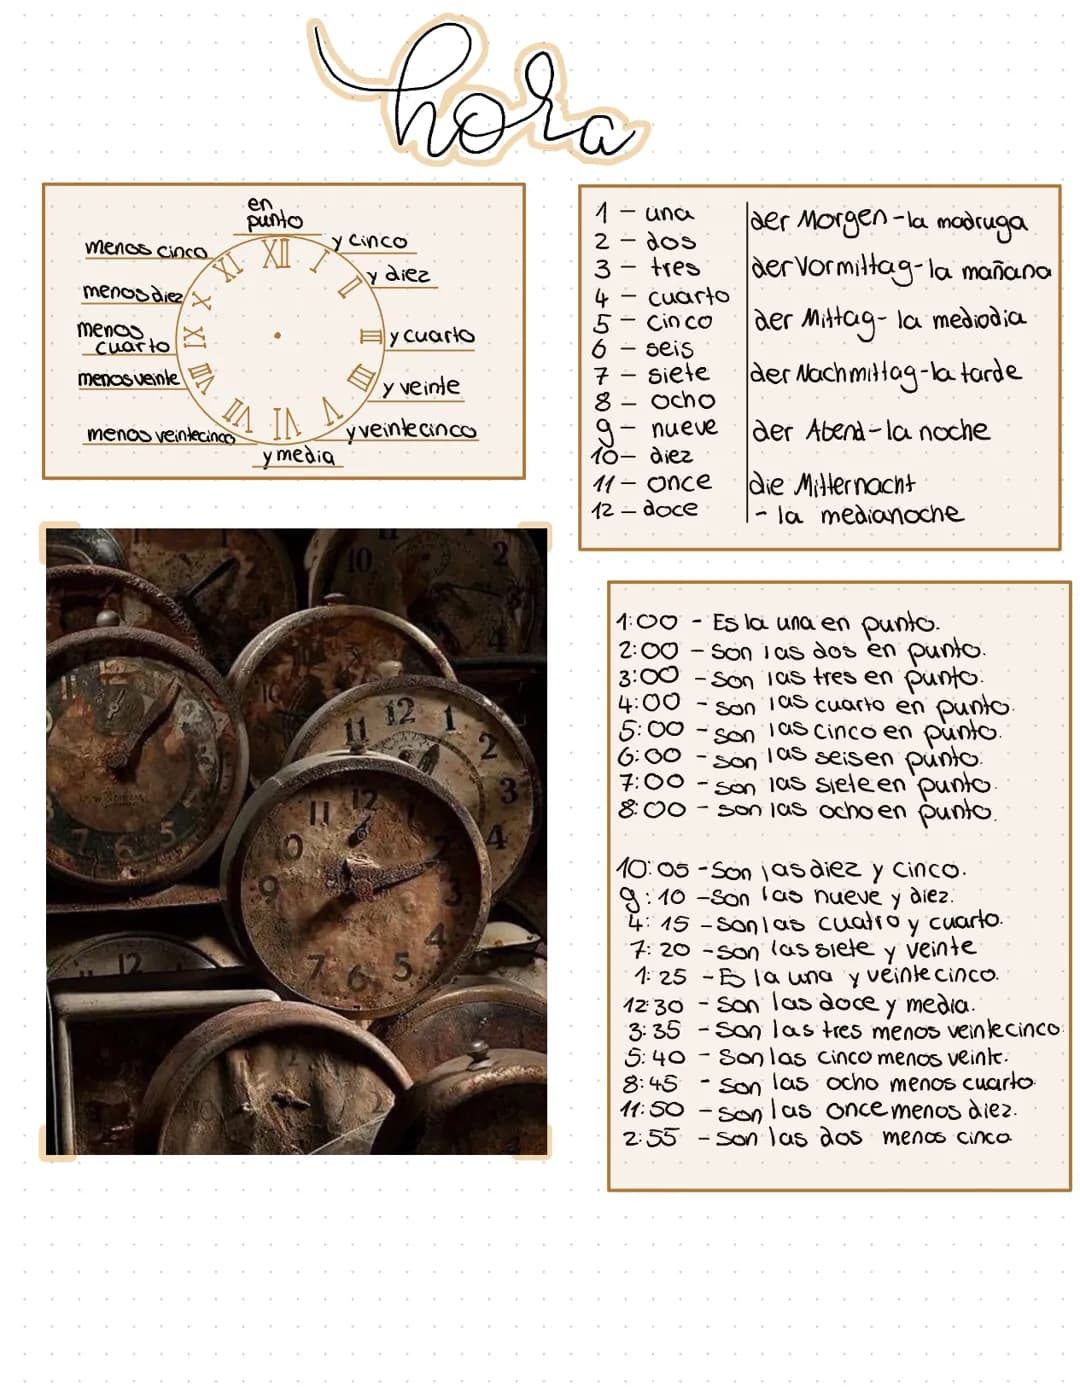 hora
en
punto
y cinco
y diez
y cuarto
y veinte
y veintecinco
y media
menos veintecinco
menos veinte
menos
cuarto
menos diez
menos cinco
XII
I
II
III
IIII
V
VI
VII
VIII
IX
X
XI
1 - una
2 - dos
3 - tres
4 - cuarto
5 - cinco
6 - seis
7 - siete
8 - ocho
9 - nueve
10 - diez
11 - once
12 - doce
der Morgen - la madruga
der Vormittag - la mañana
der Mittag - la mediodia
der Nachmittag - la tarde
der Abend - la noche
die Mitternacht
- la medianoche
1:00 - Es la una en punto.
2:00 - Son las dos en punto.
3:00 - Son las tres en punto.
4:00 - Son las cuarto en punto.
5:00 - Son las cinco en punto.
6:00 - Son las seis en punto.
7:00 - Son las siete en punto.
8:00 - Son las ocho en punto.
10:05 - Son las diez y cinco.
9:10 - Son las nueve y diez.
4:15 - Son las cuatro y cuarto.
7:20 - Son las siete y veinte
1:25 - Es la una y veintecinco.
12:30 - Son las doce y media.
3:35 - Son las tres menos veintecinco
5:40 - Son las cinco menos veinte.
8:45 - Son las ocho menos cuarto
11:50 - Son las once menos diez.
2:55 - Son las dos menos cinco
10 11 2
4
11 12 1
2
3
4
11 12
10 2
9 3
4
7 6 5
7 5
12